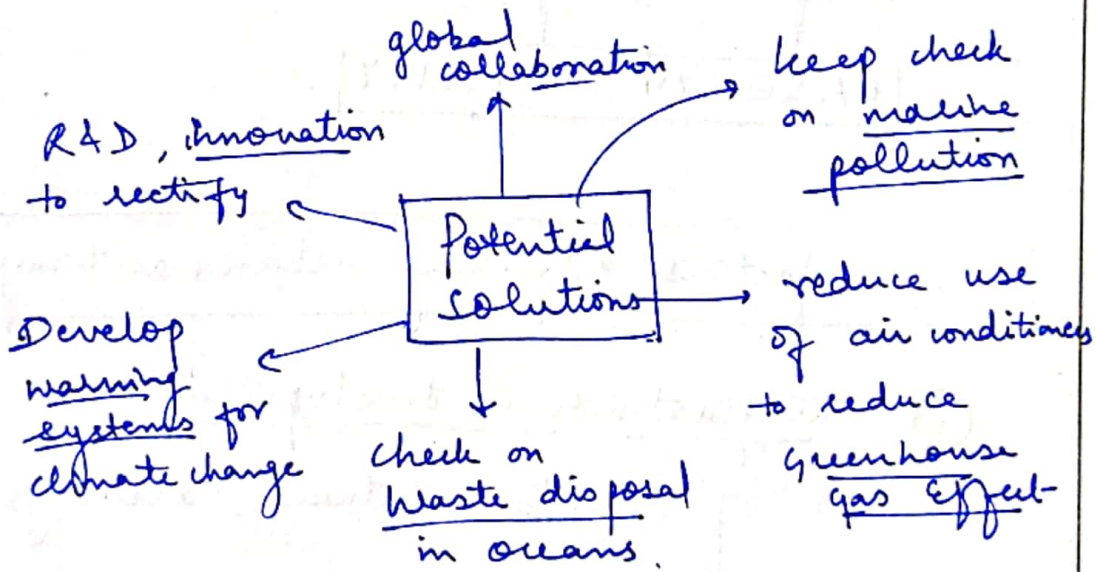 global
collaboration
keep check
on marine
pollution
R&D, innovation
to rectify
Potential
solutions
reduce use
of air conditioners
to reduce
greenhouse
gas effect
Develop
warning
systems for
climate change
check on
waste disposal
in oceans.